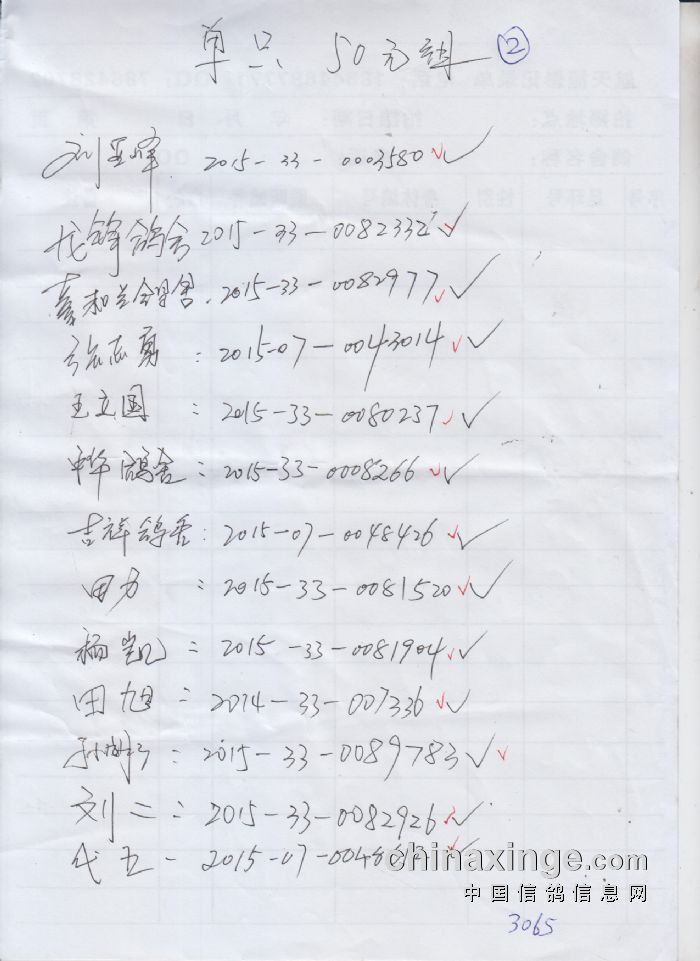 单只 50元组 ②
刘亚峰. 2015-33-0003580
鸽舍 2015-33-008233
鸽舍. 2015-33-0082977
张志勇: 2015-07-0043014
王立国: 2015-33-0080237
中华鸽舍: 2015-33-0008266
吉祥鸽舍: 2015-07-0048426
田力: 2015-33-0081520
杨凯: 2015-33-0081904
田旭: 2014-33-007336
孙: 2015-33-0089783
刘二: 2015-33-0082926
代五- 2015-07-004
chinaxinge.com
中国信鸽信息网
3065